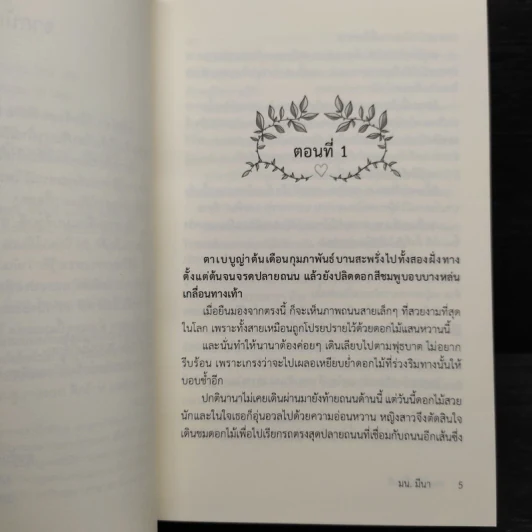 ตอนที่ 1
ตาเบบูญ่าต้นเดือนกุมภาพันธ์บานสะพรั่งไปทั้งสองฝั่งทาง
ตั้งแต่ต้นจนจรดปลายถนน แล้วยังปลิดดอกสีชมพูบอบบางหล่น
เกลื่อนทางเท้า
เมื่อยืนมองจากตรงนี้ ก็จะเห็นภาพถนนสายเล็กๆ ที่สวยงามที่สุด
ในโลก เพราะทั้งสายเหมือนถูกโปรยปรายไว้ด้วยดอกไม้แสนหวานนี้
และนั่นทำให้นานาต้องค่อยๆ เดินเลียบไปตามฟุตบาต ไม่อยาก
รีบร้อน เพราะเกรงว่าจะไปเผลอเหยียบย่ำดอกไม้ที่ร่วงริมทางนั้นให้
บอบช้ำอีก
ปกตินานาไม่เคยเดินผ่านมายังท้ายถนนด้านนี้ แต่วันนี้ดอกไม้สวย
นักและในใจเธอก็อุ่นอวลไปด้วยความอ่อนหวาน หญิงสาวจึงตัดสินใจ
เดินชมดอกไม้เพื่อไปเรียกรถตรงสุดปลายถนนที่เชื่อมกับถนนอีกเส้นซึ่ง
มน. มีนา 5